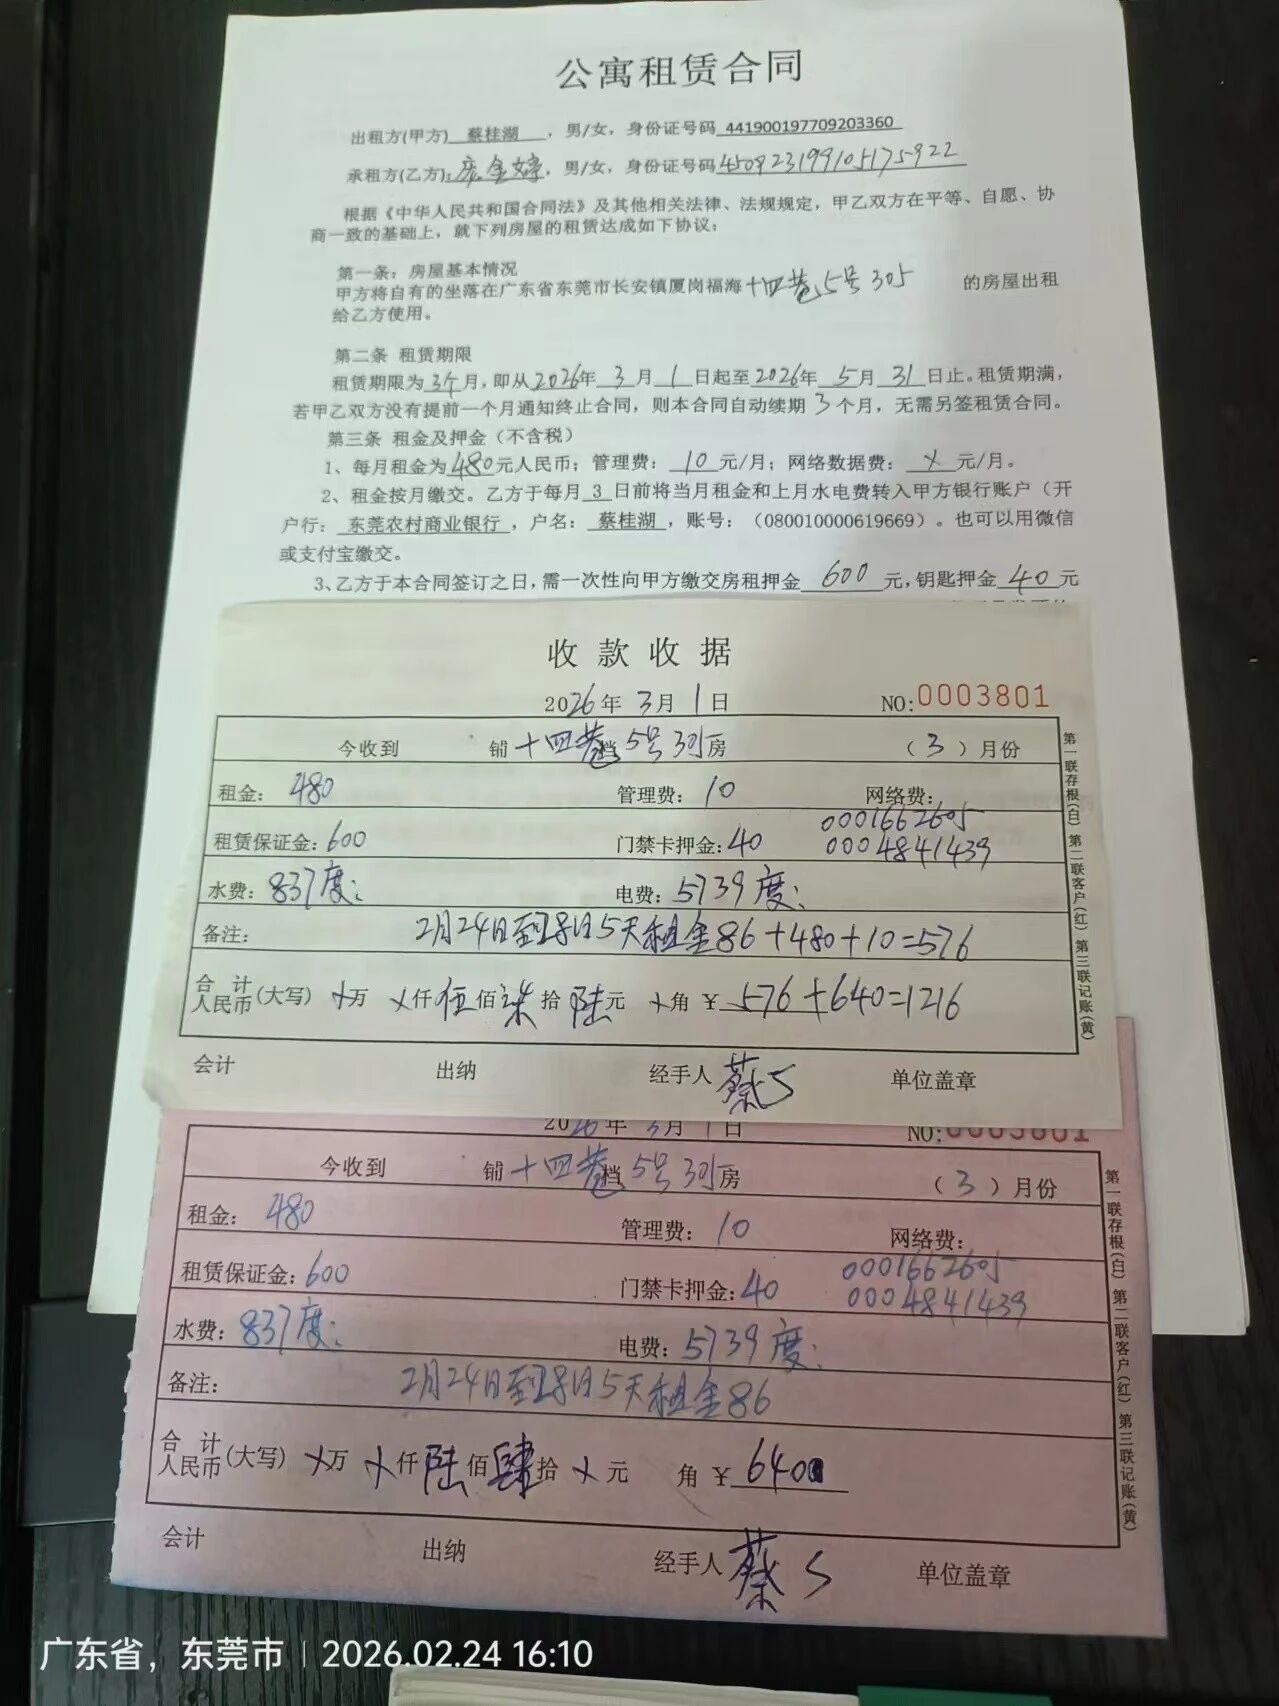 公寓租赁合同
出租方(甲方) 蔡桂湖 ，男/女，身份证号码 441900197709203360
承租方(乙方)：庞金婷，男/女，身份证号码450923199105175922
根据《中华人民共和国合同法》及其他相关法律、法规规定，甲乙双方在平等、自愿、协
商一致的基础上，就下列房屋的租赁达成如下协议：
第一条：房屋基本情况
甲方将自有的坐落在广东省东莞市长安镇厦岗福海十四巷5号305 的房屋出租
给乙方使用。
第二条 租赁期限
租赁期限为3个月，即从2026年 3 月 1 日起至2026年 5 月 31 日止。租赁期满，
若甲乙双方没有提前一个月通知终止合同，则本合同自动续期 3 个月，无需另签租赁合同。
第三条 租金及押金（不含税）
1、每月租金为480元人民币；管理费：10 元/月；网络数据费：X 元/月。
2、租金按月缴交。乙方于每月 3 日前将当月租金和上月水电费转入甲方银行账户（开
户行：东莞农村商业银行，户名：蔡桂湖，账号：（080010000619669）。也可以用微信
或支付宝缴交。
3、乙方于本合同签订之日，需一次性向甲方缴交房租押金 600 元，钥匙押金 40 元
收款收据
2026年 3月 1日 NO:0003801
今收到 铺 十四巷档 5号305房 （3）月份
租金：480 管理费：10 网络费：
租赁保证金：600 门禁卡押金：40 0001662605
0004841439
水费：837度： 电费：5739度：
备注： 2月24日至28日5天租金86+480+10=576
合计人民币(大写) X万 X仟伍佰柒拾陆元 X角 ¥ 576+640=1216
会计 出纳 经手人 蔡S 单位盖章
第一联存根(白) 第二联客户(红) 第三联记账(黄)
2026年 3月 1日 NO:0003801
今收到 铺 十四巷档 5号305房 （3）月份
租金：480 管理费：10 网络费：
租赁保证金：600 门禁卡押金：40 0001662605
0004841439
水费：837度： 电费：5739度：
备注： 2月24日至28日5天租金86
合计人民币(大写) X万 X仟陆佰肆拾 X元 角 ¥ 640
会计 出纳 经手人 蔡S 单位盖章
第一联存根(白) 第二联客户(红) 第三联记账(黄)
广东省，东莞市 | 2026.02.24 16:10